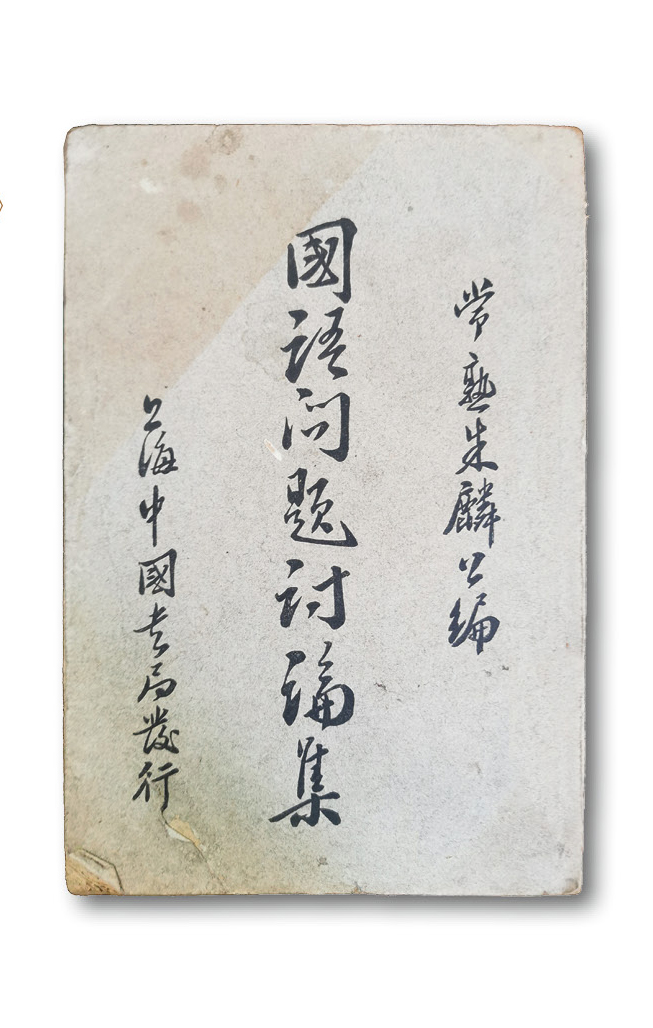 常熟朱麟公編
國語问题討論集
上海中國书局發行